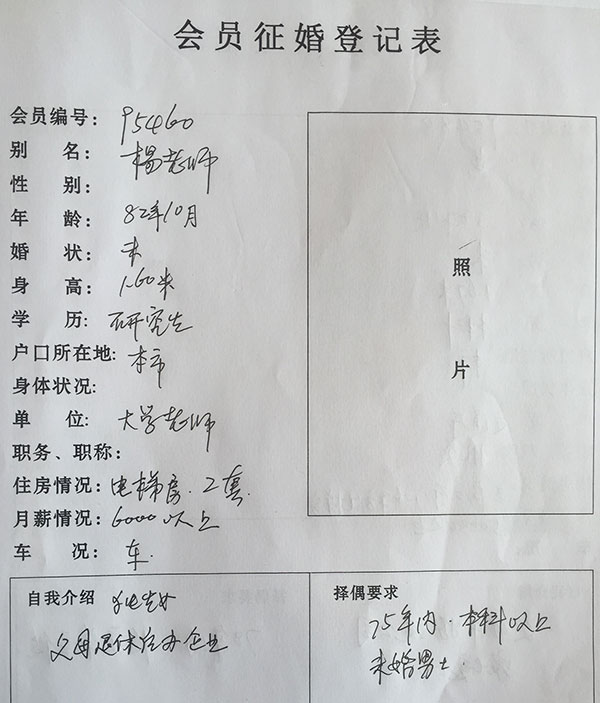 会员征婚登记表
会员编号: 95460
别 名: 杨老师
性 别:
年 龄: 82年10月
婚 状: 未
身 高: 1.60米
学 历: 研究生
户口所在地: 本市
身体状况:
单 位: 大学老师
职务、职称:
住房情况: 电梯房.2套.
月薪情况: 6000以上
车 况: 车.
照
片
自我介绍 独生女
父母退休后办企业
择偶要求
75年内.本科以上
未婚男士.